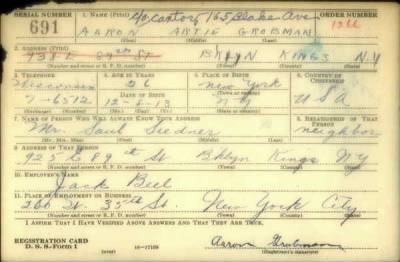 SERIAL NUMBER 1. NAME (Print) c/o Cantor, 765 Blake Ave ORDER NUMBER
691 AARON ARTIE GROBMAN
(First) (Middle) (Last)
2. ADDRESS (Print)
938 E 89th St BKLYN KINGS N.Y
(Number and street or R. F. D. number) (Town) (County) (State)
3. TELEPHONE 4. AGE IN YEARS 5. PLACE OF BIRTH 6. COUNTRY OF CITIZENSHIP
Wisconsin 26 New York
7-6512 DATE OF BIRTH (Town or county)
12-5-13 NY USA
(Mo.) (Day) (Yr.) (State or country)
7. NAME OF PERSON WHO WILL ALWAYS KNOW YOUR ADDRESS 8. RELATIONSHIP OF THAT PERSON
Mr. Saul neighbor
(Mr., Mrs., Miss) (First) (Middle) (Last)
9. ADDRESS OF THAT PERSON
925 E 89 St Bklyn Kings NY
(Number and street or R. F. D. number) (Town) (County) (State)
10. EMPLOYER'S NAME
Jack
11. PLACE OF EMPLOYMENT OR BUSINESS
260 W. 35th St. New York City
(Number and street or R. F. D. number) (Town) (County) (State)
I AFFIRM THAT I HAVE VERIFIED ABOVE ANSWERS AND THAT THEY ARE TRUE.
REGISTRATION CARD
D. S. S. Form 1 16-17105 Aaron Grobman
(Registrant's signature)